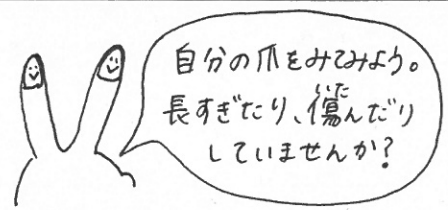 自分の爪をみてみよう。
長すぎたり、傷んだり
していませんか?